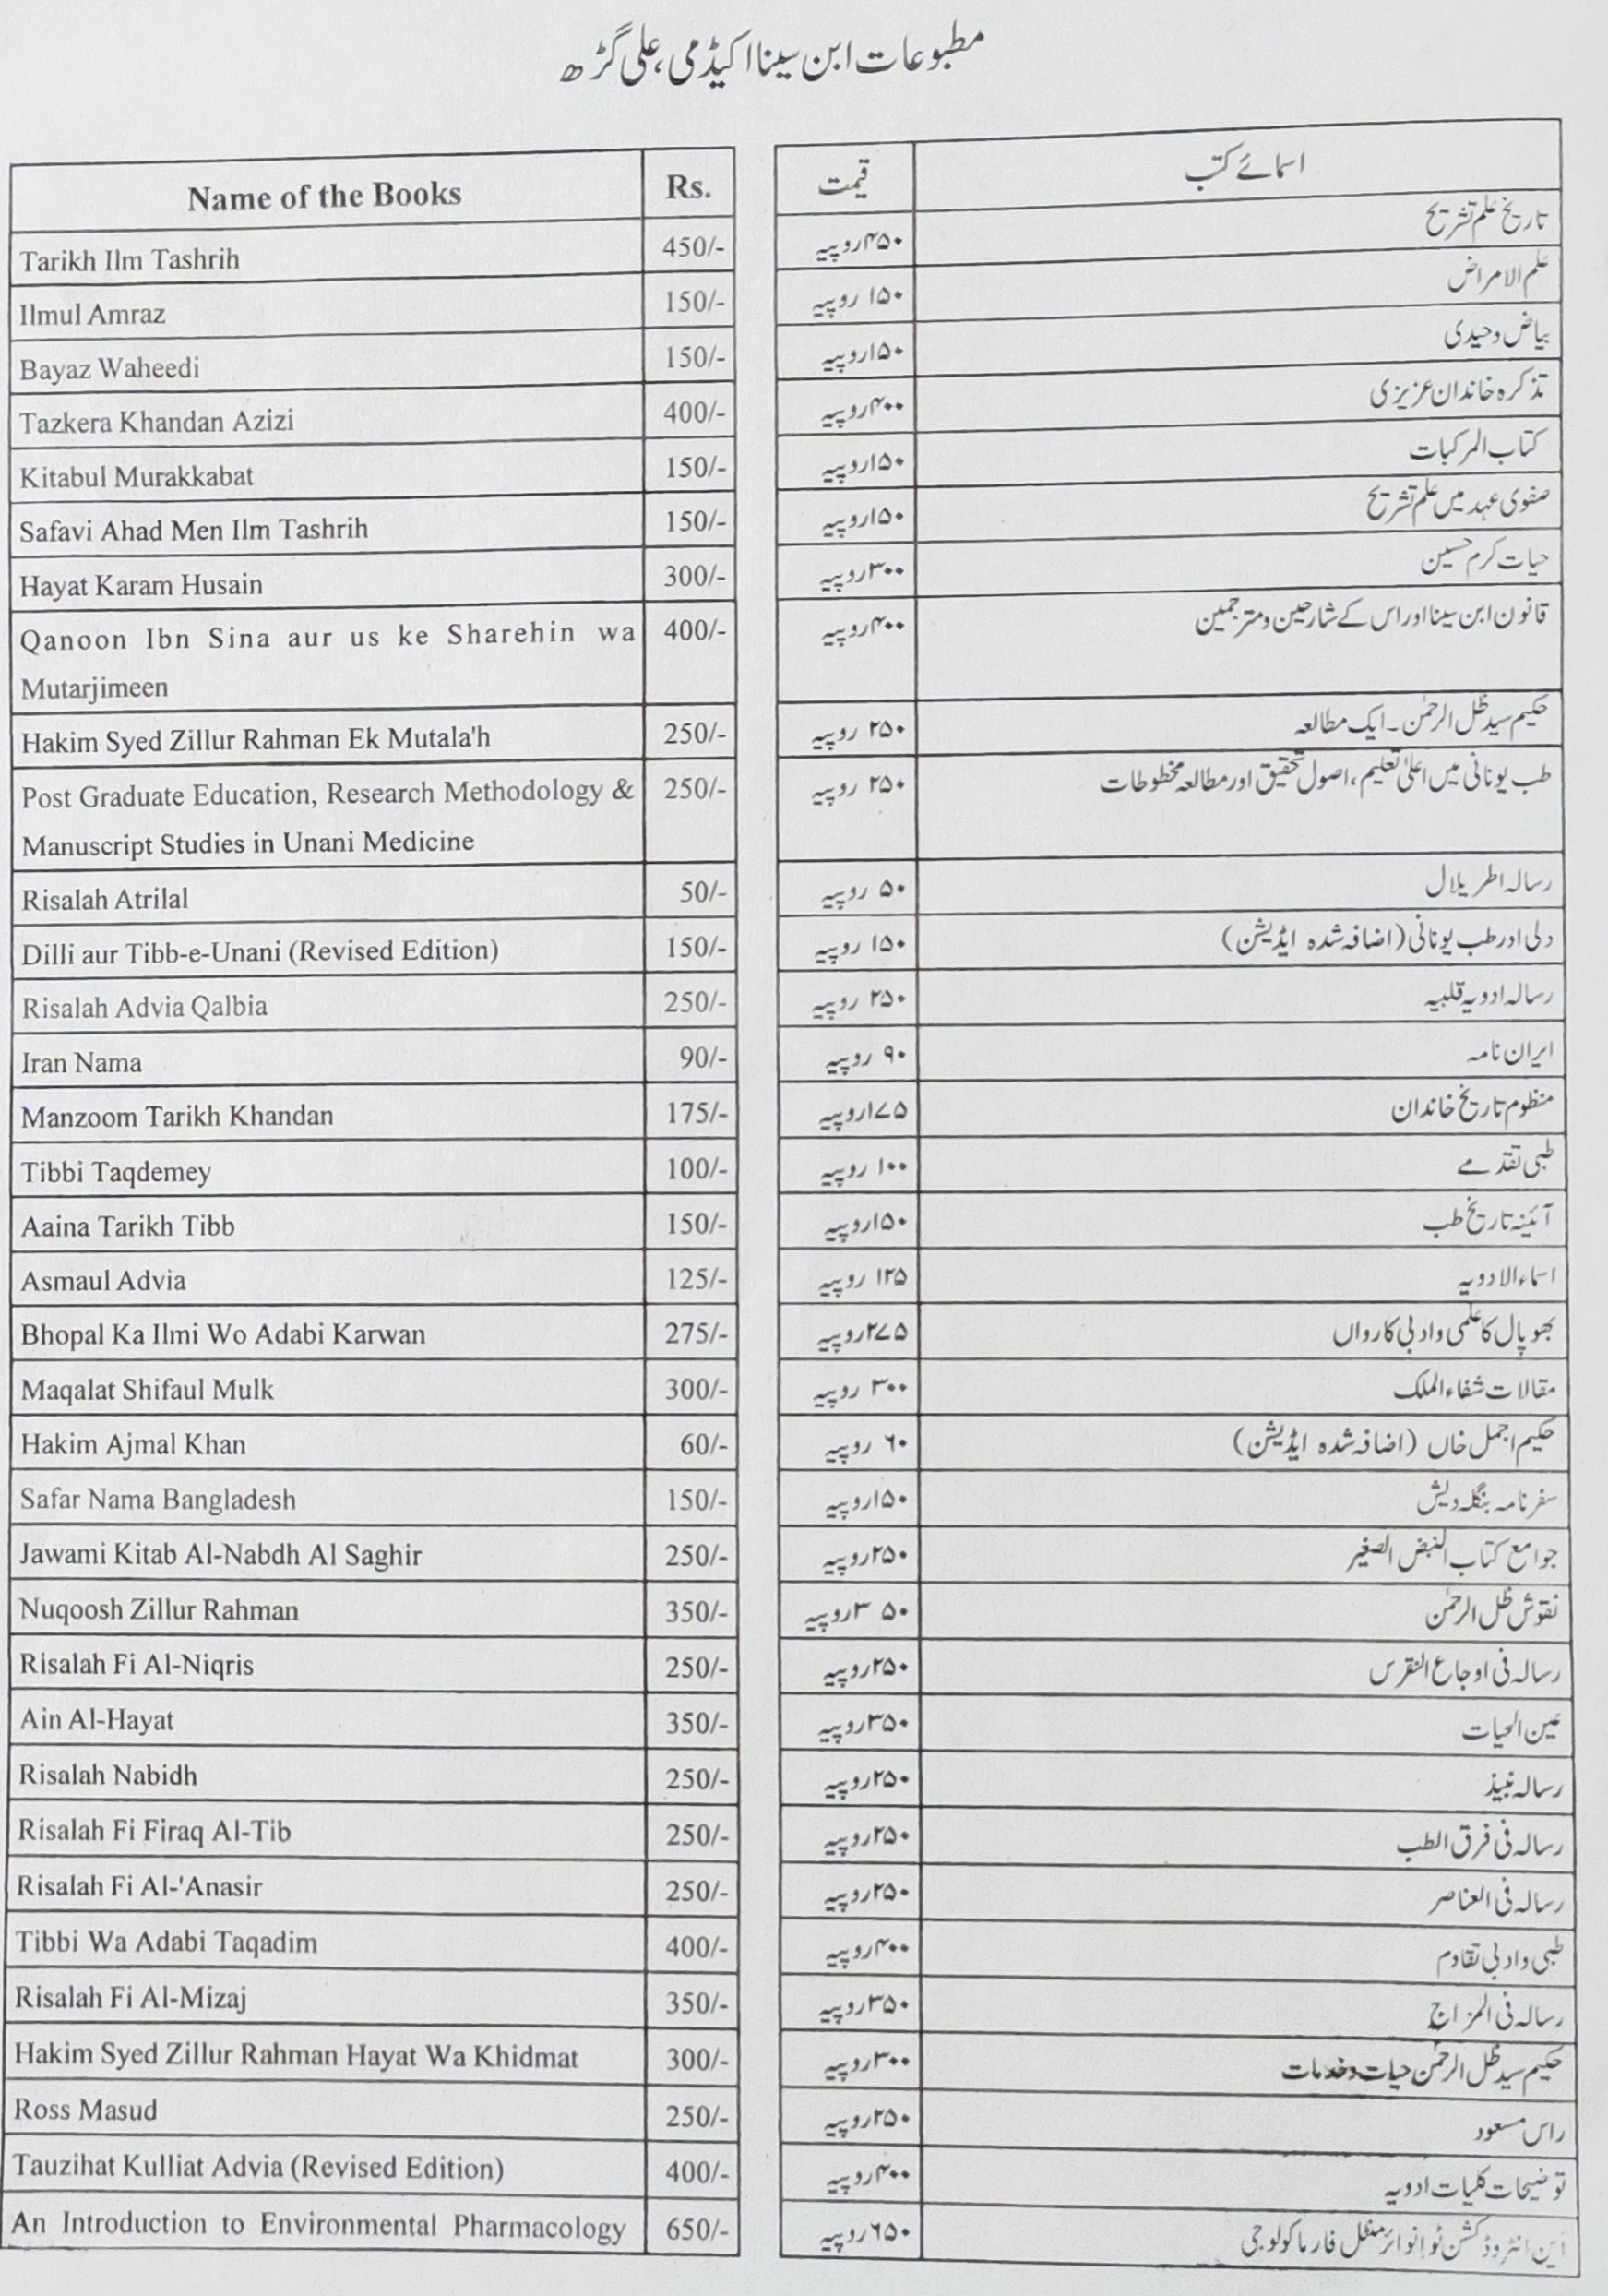 مطبوعات ابن سینا اکیڈمی، علی گڑھ
Name of the Books Rs.
Tarikh Ilm Tashrih 450/-
Ilmul Amraz 150/-
Bayaz Waheedi 150/-
Tazkera Khandan Azizi 400/-
Kitabul Murakkabat 150/-
Safavi Ahad Men Ilm Tashrih 150/-
Hayat Karam Husain 300/-
Qanoon Ibn Sina aur us ke Sharehin wa 400/-
Mutarjimeen
Hakim Syed Zillur Rahman Ek Mutala'h 250/-
Post Graduate Education, Research Methodology & 250/-
Manuscript Studies in Unani Medicine
Risalah Atrilal 50/-
Dilli aur Tibb-e-Unani (Revised Edition) 150/-
Risalah Advia Qalbia 250/-
Iran Nama 90/-
Manzoom Tarikh Khandan 175/-
Tibbi Taqdemey 100/-
Aaina Tarikh Tibb 150/-
Asmaul Advia 125/-
Bhopal Ka Ilmi Wo Adabi Karwan 275/-
Maqalat Shifaul Mulk 300/-
Hakim Ajmal Khan 60/-
Safar Nama Bangladesh 150/-
Jawami Kitab Al-Nabdh Al Saghir 250/-
Nuqoosh Zillur Rahman 350/-
Risalah Fi Al-Niqris 250/-
Ain Al-Hayat 350/-
Risalah Nabidh 250/-
Risalah Fi Firaq Al-Tib 250/-
Risalah Fi Al-'Anasir 250/-
Tibbi Wa Adabi Taqadim 400/-
Risalah Fi Al-Mizaj 350/-
Hakim Syed Zillur Rahman Hayat Wa Khidmat 300/-
Ross Masud 250/-
Tauzihat Kulliat Advia (Revised Edition) 400/-
An Introduction to Environmental Pharmacology 650/-
اسمائے کتب قیمت
تاریخ علم تشریح ۴۵۰ روپیہ
علم الامراض ۱۵۰ روپیہ
بیاض وحیدی ۱۵۰ روپیہ
تذکرہ خاندان عزیزی ۴۰۰ روپیہ
کتاب المرکبات ۱۵۰ روپیہ
صفوی عہد میں علم تشریح ۱۵۰ روپیہ
حیات کرم حسین ۳۰۰ روپیہ
قانون ابن سینا اور اس کے شارحین و مترجمین ۴۰۰ روپیہ
حکیم سید ظل الرحمٰن۔ ایک مطالعہ ۲۵۰ روپیہ
طب یونانی میں اعلیٰ تعلیم، اصول تحقیق اور مطالعہ مخطوطات ۲۵۰ روپیہ
رسالہ اطریلال ۵۰ روپیہ
دلی اور طب یونانی (اضافہ شدہ ایڈیشن) ۱۵۰ روپیہ
رسالہ ادویہ قلبیہ ۲۵۰ روپیہ
ایران نامہ ۹۰ روپیہ
منظوم تاریخ خاندان ۱۷۵ روپیہ
طبی تقدمے ۱۰۰ روپیہ
آئینہ تاریخ طب ۱۵۰ روپیہ
اسماء الادویہ ۱۲۵ روپیہ
بھوپال کا علمی و ادبی کارواں ۲۷۵ روپیہ
مقالات شفاء الملک ۳۰۰ روپیہ
حکیم اجمل خاں (اضافہ شدہ ایڈیشن) ۶۰ روپیہ
سفر نامہ بنگلہ دیش ۱۵۰ روپیہ
جوامع کتاب النبض الصغیر ۲۵۰ روپیہ
نقوش ظل الرحمٰن ۳۵۰ روپیہ
رسالہ فی اوجاع النقرس ۲۵۰ روپیہ
عین الحیات ۳۵۰ روپیہ
رسالہ نبیذ ۲۵۰ روپیہ
رسالہ فی فرق الطب ۲۵۰ روپیہ
رسالہ فی العناصر ۲۵۰ روپیہ
طبی و ادبی تقادم ۴۰۰ روپیہ
رسالہ فی المزاج ۳۵۰ روپیہ
حکیم سید ظل الرحمٰن حیات و خدمات ۳۰۰ روپیہ
راس مسعود ۲۵۰ روپیہ
توضیحات کلیات ادویہ ۴۰۰ روپیہ
این انٹروڈکشن ٹو انوائرمنٹل فارماکولوجی ۶۵۰ روپیہ